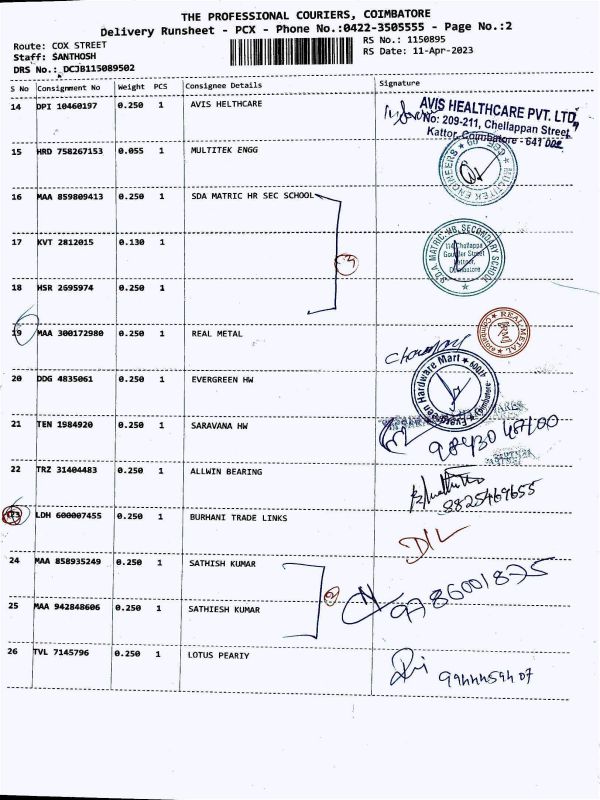 THE PROFESSIONAL COURIERS, COIMBATORE
Delivery Runsheet - PCX - Phone No.:0422-3505555 - Page No.:2
Route: COX STREET
Staff: SANTHOSH
DRS No.: DCJB115089502
RS No.: 1150895
RS Date: 11-Apr-2023
S No Consignment No Weight PCS Consignee Details Signature
14 DPI 10460197 0.250 1 AVIS HELTHCARE
AVIS HEALTHCARE PVT. LTD,
No: 209-211, Chellappan Street,
Kattor, Coimbatore - 641 009.
15 HRD 758267153 0.055 1 MULTITEK ENGG
MULTITEK ENGINEERS
16 MAA 859809413 0.250 1 SDA MATRIC HR SEC SCHOOL
S.D.A. MATRIC. HR. SECONDARY SCHOOL
Coimbatore
17 KVT 2812015 0.130 1
3
18 HSR 2695974 0.250 1
19 MAA 300172980 0.250 1 REAL METAL
REAL METAL
COIMBATORE
20 DDG 4835061 0.250 1 EVERGREEN HW
Evergreen Hardware Mart
Coimbatore
21 TEN 1984920 0.250 1 SARAVANA HW
98430 47100
22 TRZ 31404483 0.250 1 ALLWIN BEARING
8825469655
23 LDH 600007455 0.250 1 BURHANI TRADE LINKS
D/L
24 MAA 858935249 0.250 1 SATHISH KUMAR
2
9786001875
25 MAA 942848606 0.250 1 SATHIESH KUMAR
26 TVL 7145796 0.250 1 LOTUS PEARIY
9944459407